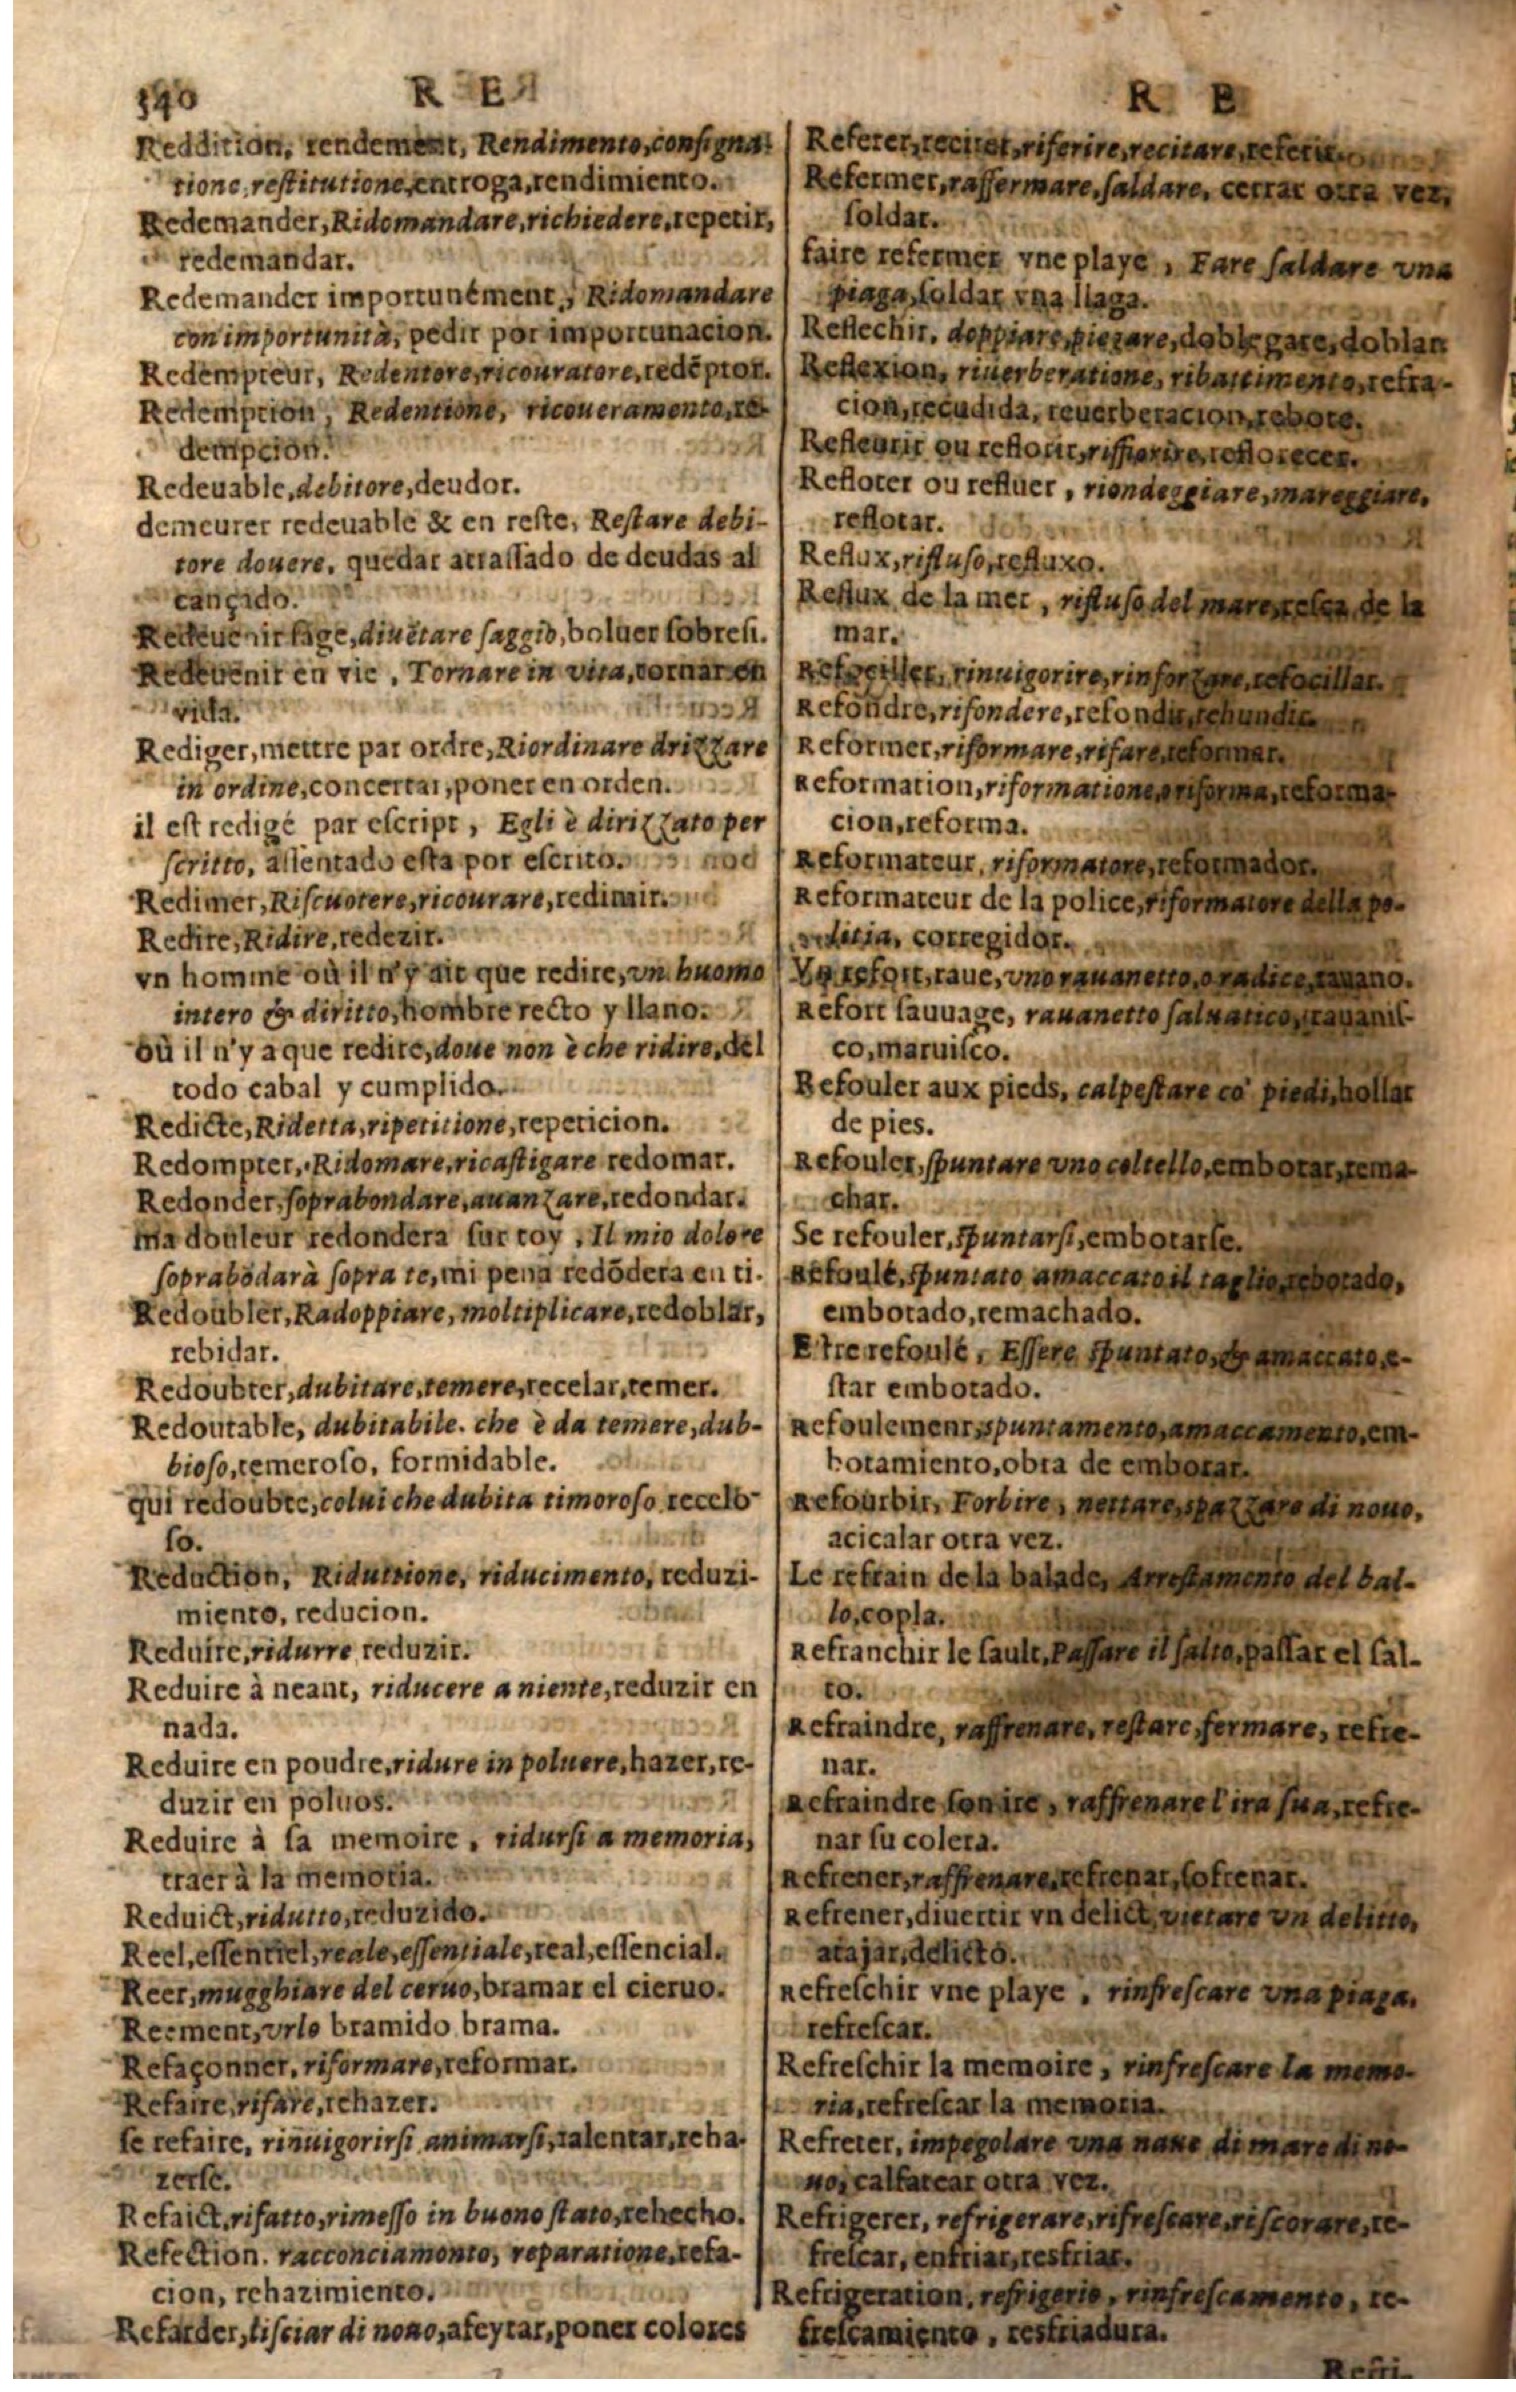 340 R E
Reddition, rendement, Rendimento, consigna-
tione, restitutione, entroga, rendimiento.
Redemander, Ridomandare, richiedere, repetir,
redemandar.
Redemander importunément, Ridomandare
con importunità, pedir por importunacion.
Redempteur, Redentore, ricouratore, redẽptor.
Redemption, Redentione, ricoueramento, re-
dempcion.
Redeuable, debitore, deudor.
demeurer redeuable & en reste, Restare debi-
tore douere, quedar atrassado de deudas al
cançido.
Redeuenir sage, diuẽtare saggio, boluer sobresi.
Redeuenir en vie, Tornare in vita, tornar en
vida.
Rediger, mettre par ordre, Riordinare drizzare
in ordine, concertar, poner en orden.
il est redigé par escript, Egli è dirizzato per
scritto, assentado esta por escrito.
Redimer, Riscuotere, ricourare, redimir.
Redire, Ridire, redezir.
vn homme où il n'y ait que redire, vn huomo
intero & diritto, hombre recto y llano.
où il n'y a que redire, doue non è che ridire, del
todo cabal y cumplido.
Redicte, Ridetta, ripetitione, repeticion.
Redompter, Ridomare, ricastigare redomar.
Redonder, soprabondare, auanzare, redondar.
ma douleur redondera sur toy, Il mio dolore
soprabõdarà sopra te, mi pena redõdera en ti.
Redoubler, Radoppiare, moltiplicare, redoblar,
rebidar.
Redoubter, dubitare, temere, recelar, temer.
Redoutable, dubitabile. che è da temere, dub-
bioso, temeroso, formidable.
qui redoubte, colui che dubita timoroso recelo-
so.
Reduction, Riduttione, riducimento, reduzi-
miento, reducion.
Reduire, ridurre reduzir.
Reduire à neant, riducere a niente, reduzir en
nada.
Reduire en poudre, ridure in poluere, hazer, re-
duzir en poluos.
Reduire à sa memoire, ridursi a memoria,
traer à la memoria.
Reduict, ridutto, reduzido.
Reel, essentiel, reale, essentiale, real, essencial.
Reer, mugghiare del ceruo, bramar el cieruo.
Reement, vrlo bramido brama.
Refaçonner, riformare, reformar.
Refaire, rifare, rehazer.
se refaire, rinuigorirsi animarsi, ralentar, reha-
zerse.
Refaict, rifatto, rimesso in buono stato, rehecho.
Refection. racconciamonto, reparatione, refa-
cion, rehazimiento.
Refarder, lisciar di nouo, afeytar, poner colores
R E
Referer, reciter, riferire, recitare, referir.
Refermer, raffermare, saldare, cerrar otra vez,
soldar.
faire refermer vne playe, Fare saldare vna
piaga, soldar vna llaga.
Reflechir, doppiare, piegare, doblegare, doblar.
Reflexion, riuerberatione, ribattimento, refra-
cion, recudida, reuerberacion, rebote.
Refleurir ou reflorir, riffiorire, reflorecer.
Refloter ou refluer, riondeggiare, mareggiare,
reflotar.
Reflux, riflusо, refluxo.
Reflux de la mer, riflusо del mare, resca de la
mar.
Refociller, rinuigorire, rinforzare, refocillar.
Refondre, rifondere, refondir, rehundir.
Reformer, riformare, rifare, reformar.
Reformation, riformatione, o riforma, reforma-
cion, reforma.
Reformateur, riformatore, reformador.
Reformateur de la police, riformatore della po-
litia, corregidor.
Vn refort, raue, vno rauanetto, o radice, rauano.
Refort sauuage, rauanetto saluatico, rauanis-
co, maruisco.
Refouler aux pieds, calpestare co' piedi, hollar
de pies.
Refouler, spuntare vno coltello, embotar, rema-
char.
Se refouler, spuntarsi, embotarse.
Refoulé, spuntato amaccato il taglio, rebotado,
embotado, remachado.
Etre refoulé, Essere spuntato, & amaccato, e-
star embotado.
Refoulement, spuntamento, amaccamento, em-
botamiento, obra de embotar.
Refourbir, Forbire, nettare, spazzare di nouo,
acicalar otra vez.
Le refrain de la balade, Arrestamento del bal-
lo, copla.
Refranchir le sault, Passare il salto, passar el sal-
to.
Refraindre, raffrenare, restare, fermare, refre-
nar.
Refraindre son ire, raffrenare l'ira sua, refre-
nar su colera.
Refrener, raffrenare, refrenar, sofrenar.
Refrener, diuertir vn delict, vietare vn delitto,
atajar, delicto.
Refreschir vne playe, rinfrescare vna piaga,
refrescar.
Refreschir la memoire, rinfrescare la memo-
ria, refrescar la memoria.
Refreter, impegolare vna naue di mare di no-
uo, calfatear otra vez.
Refrigerer, refrigerare, rifrescare, riscorare, re-
frescar, enfriar, resfriar.
Refrigeration, refrigerio, rinfrescamento, re-
frescamiento, resfriadura.
Refri-